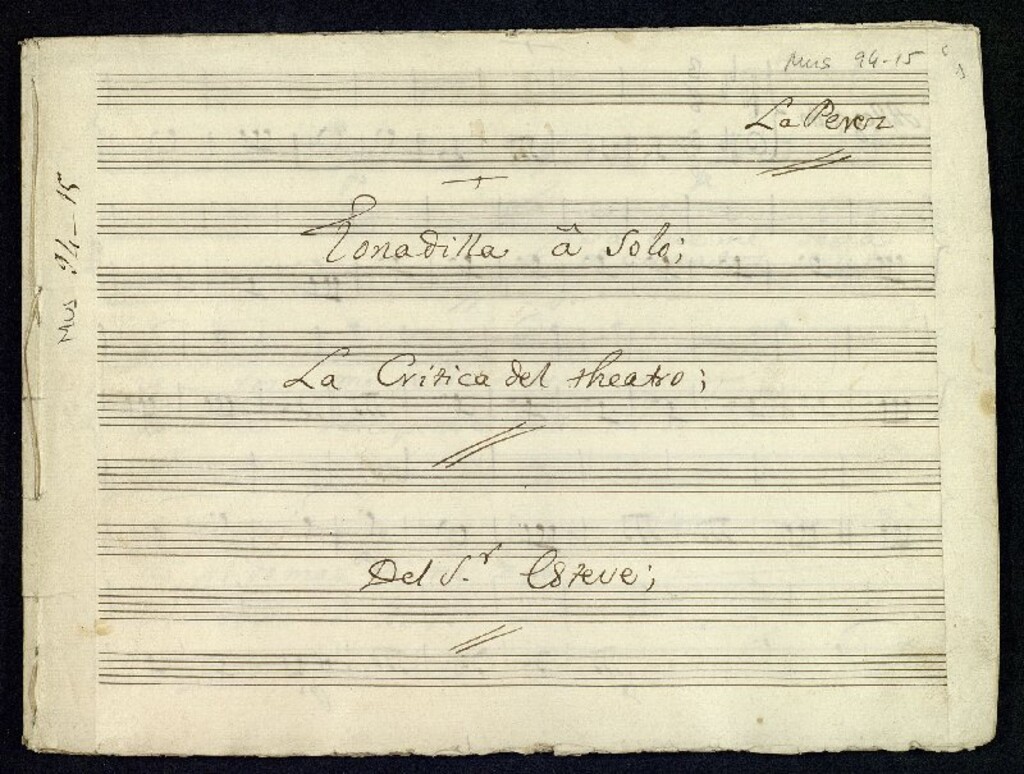 Mus 94-15
La Perez
Tonadilla â Solo;
La Critica del theatro;
Del S.r Esteve;
Mus 94-15